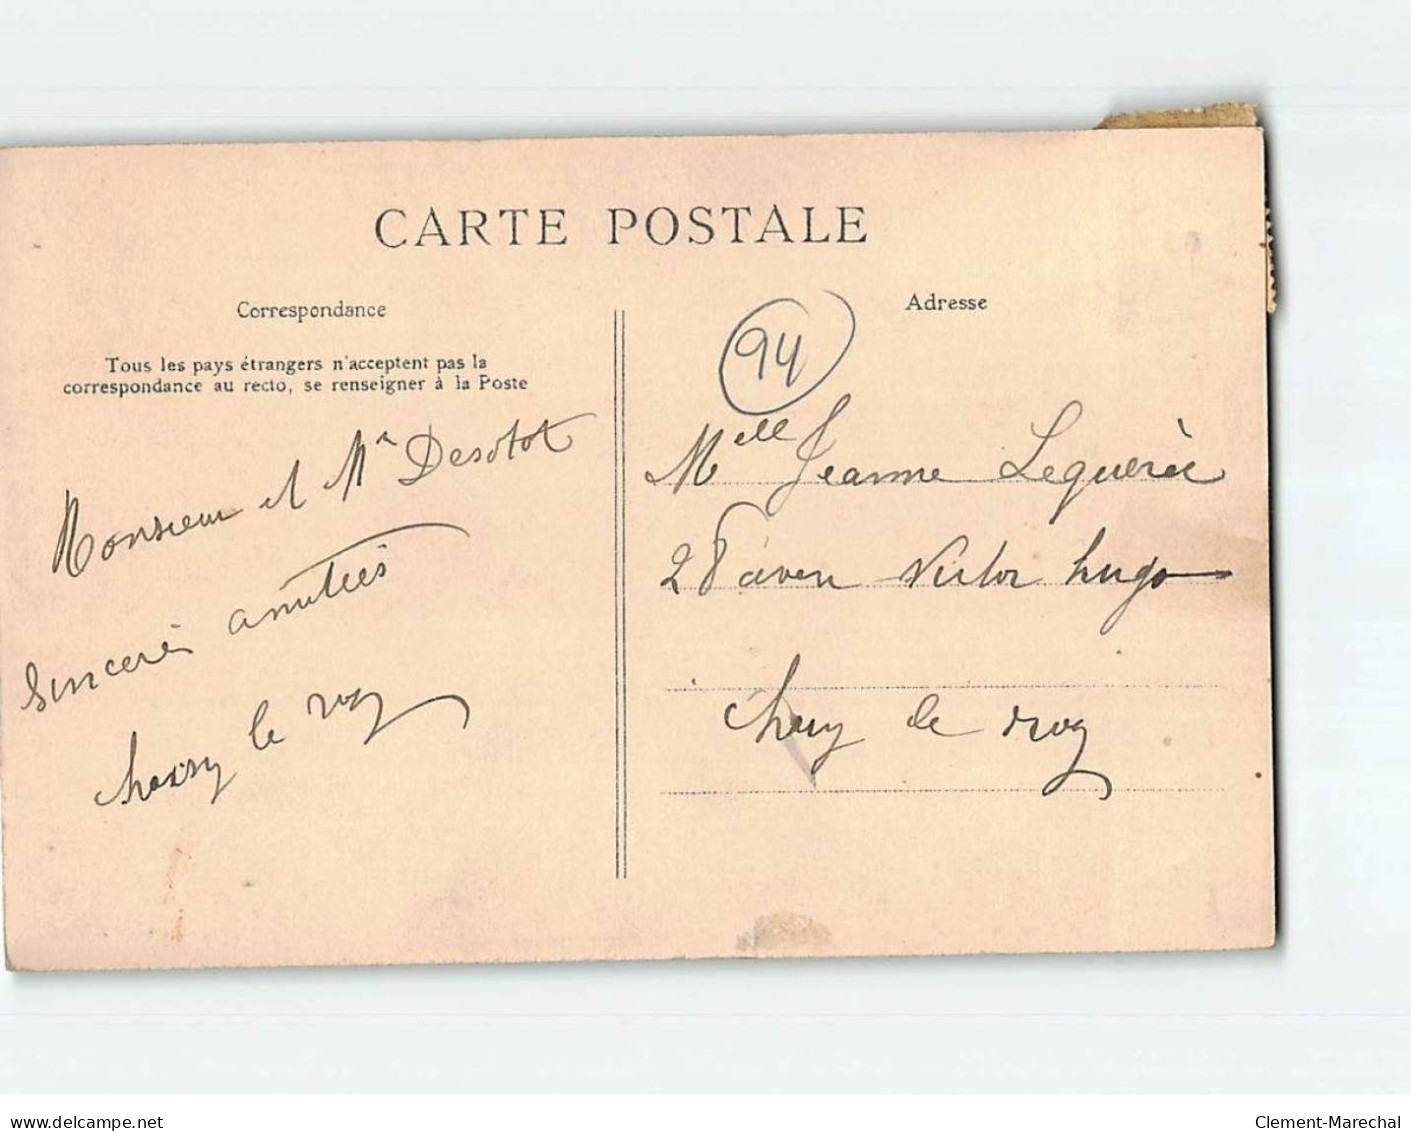 CARTE POSTALE
Correspondance
Tous les pays étrangers n'acceptent pas la
correspondance au recto, se renseigner à la Poste
Monsieur et Me Desotot
Sincères amitiés
choisy le roy
Adresse
94
Melle Jeanne Lequerèe
28 aven Victor hugo
choisy le roy
www.delcampe.net
Clement-Marechal